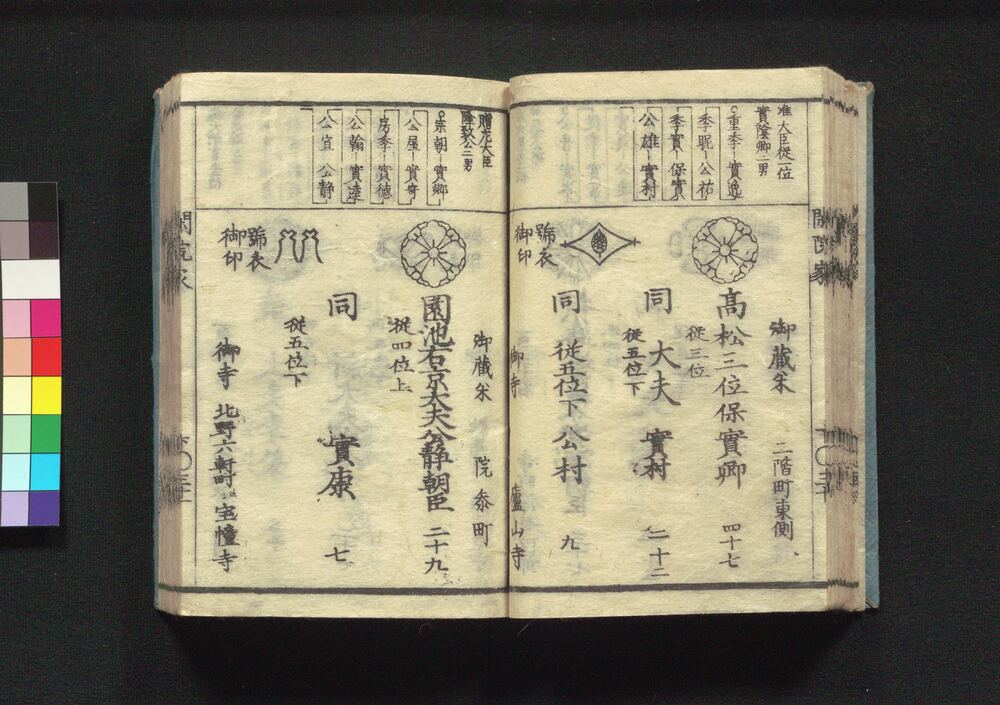 准大臣従一位
實陰卿二男
○重季─實逸
季昵─公祐
季實 保實
公雄─實村
御蔵米 二階町東側
髙松三位保實卿 四十七
従三位
同 大夫 實村 二十二
従五位下
同 従五位下 公村 九
號衣
御印
御寺 廬山寺
閑院家
贈左大臣
隆致公二男
○宗朝─實郷
公屋─實守
房季─實徳
公翰─實達
公宜 公静
御蔵米 院叅町
園池右京大夫公静朝臣 二十九
従四位上
同 實康 七
従五位下
號衣
御印
御寺 北野六軒町 宝憧寺
閑院家